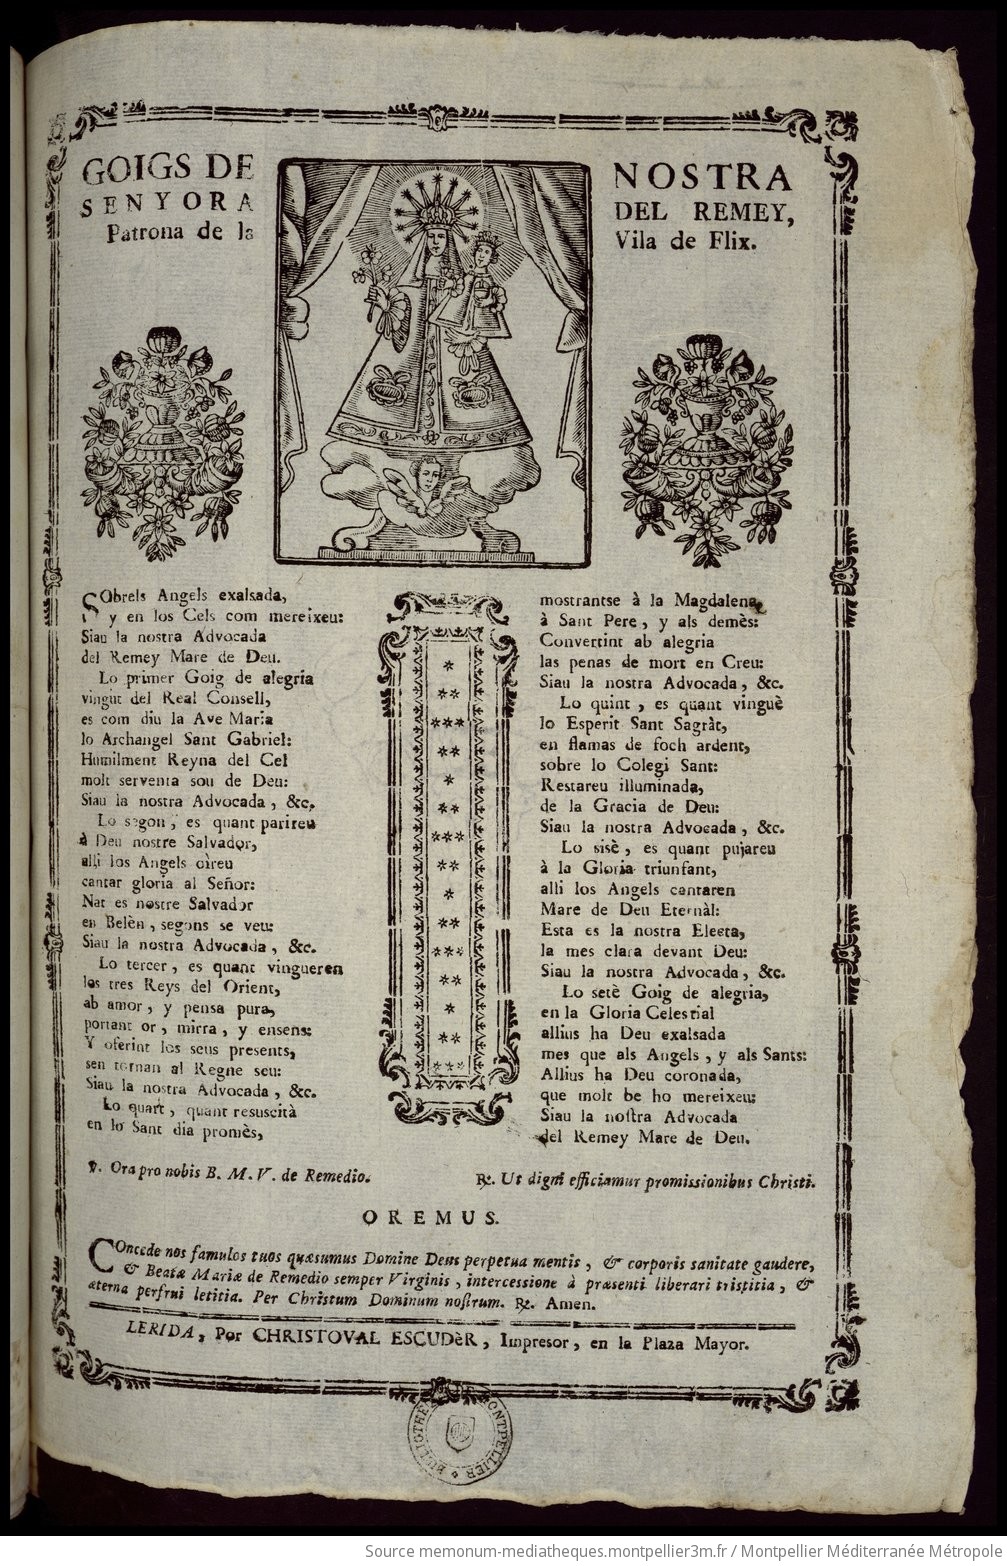 GOIGS DE NOSTRA
SENYORA DEL REMEY,
Patrona de la Vila de Flix.
SObrels Angels exalsada,
y en los Cels com mereixeu:
Siau la nostra Advocada
del Remey Mare de Deu.
Lo primer Goig de alegria
vingut del Real Consell,
es com diu la Ave Maria
lo Archangel Sant Gabriel:
Humilment Reyna del Cel
molt serventa sou de Deu:
Siau la nostra Advocada, &c.
Lo segon, es quant parireu
à Deu nostre Salvador,
alli los Angels oìreu
cantar gloria al Señor:
Nat es nostre Salvador
en Belèn, segons se veu:
Siau la nostra Advocada, &c.
Lo tercer, es quant vingueren
los tres Reys del Orient,
ab amor, y pensa pura,
portant or, mirra, y ensens:
Y oferint los seus presents,
sen tornan al Regne seu:
Siau la nostra Advocada, &c.
Lo quart, quant resuscità
en lo Sant dia promès,
mostrantse à la Magdalena,
à Sant Pere, y als demès:
Convertint ab alegria
las penas de mort en Creu:
Siau la nostra Advocada, &c.
Lo quint, es quant vinguè
lo Esperit Sant Sagràt,
en flamas de foch ardent,
sobre lo Colegi Sant:
Restareu illuminada,
de la Gracia de Deu:
Siau la nostra Advocada, &c.
Lo sisè, es quant pujareu
à la Gloria triunfant,
alli los Angels cantaren
Mare de Deu Eternàl:
Esta es la nostra Eleeta,
la mes clara devant Deu:
Siau la nostra Advocada, &c.
Lo setè Goig de alegria,
en la Gloria Celestial
allius ha Deu exalsada
mes que als Angels, y als Sants:
Allius ha Deu coronada,
que molt be ho mereixeu:
Siau la nostra Advocada
del Remey Mare de Deu.
℣. Ora pro nobis B. M. V. de Remedio. ℟. Ut digni efficiamur promissionibus Christi.
OREMUS.
COncede nos famulos tuos quæsumus Domine Deus perpetua mentis, & corporis sanitate gaudere,
& Beatæ Mariæ de Remedio semper Virginis, intercessione à præsenti liberari tristitia, &
æterna perfrui letitia. Per Christum Dominum nostrum. ℟. Amen.
LERIDA, Por CHRISTOVAL ESCUDèR, Impresor, en la Plaza Mayor.
Source memonum-mediatheques.montpellier3m.fr / Montpellier Méditerranée Métropole